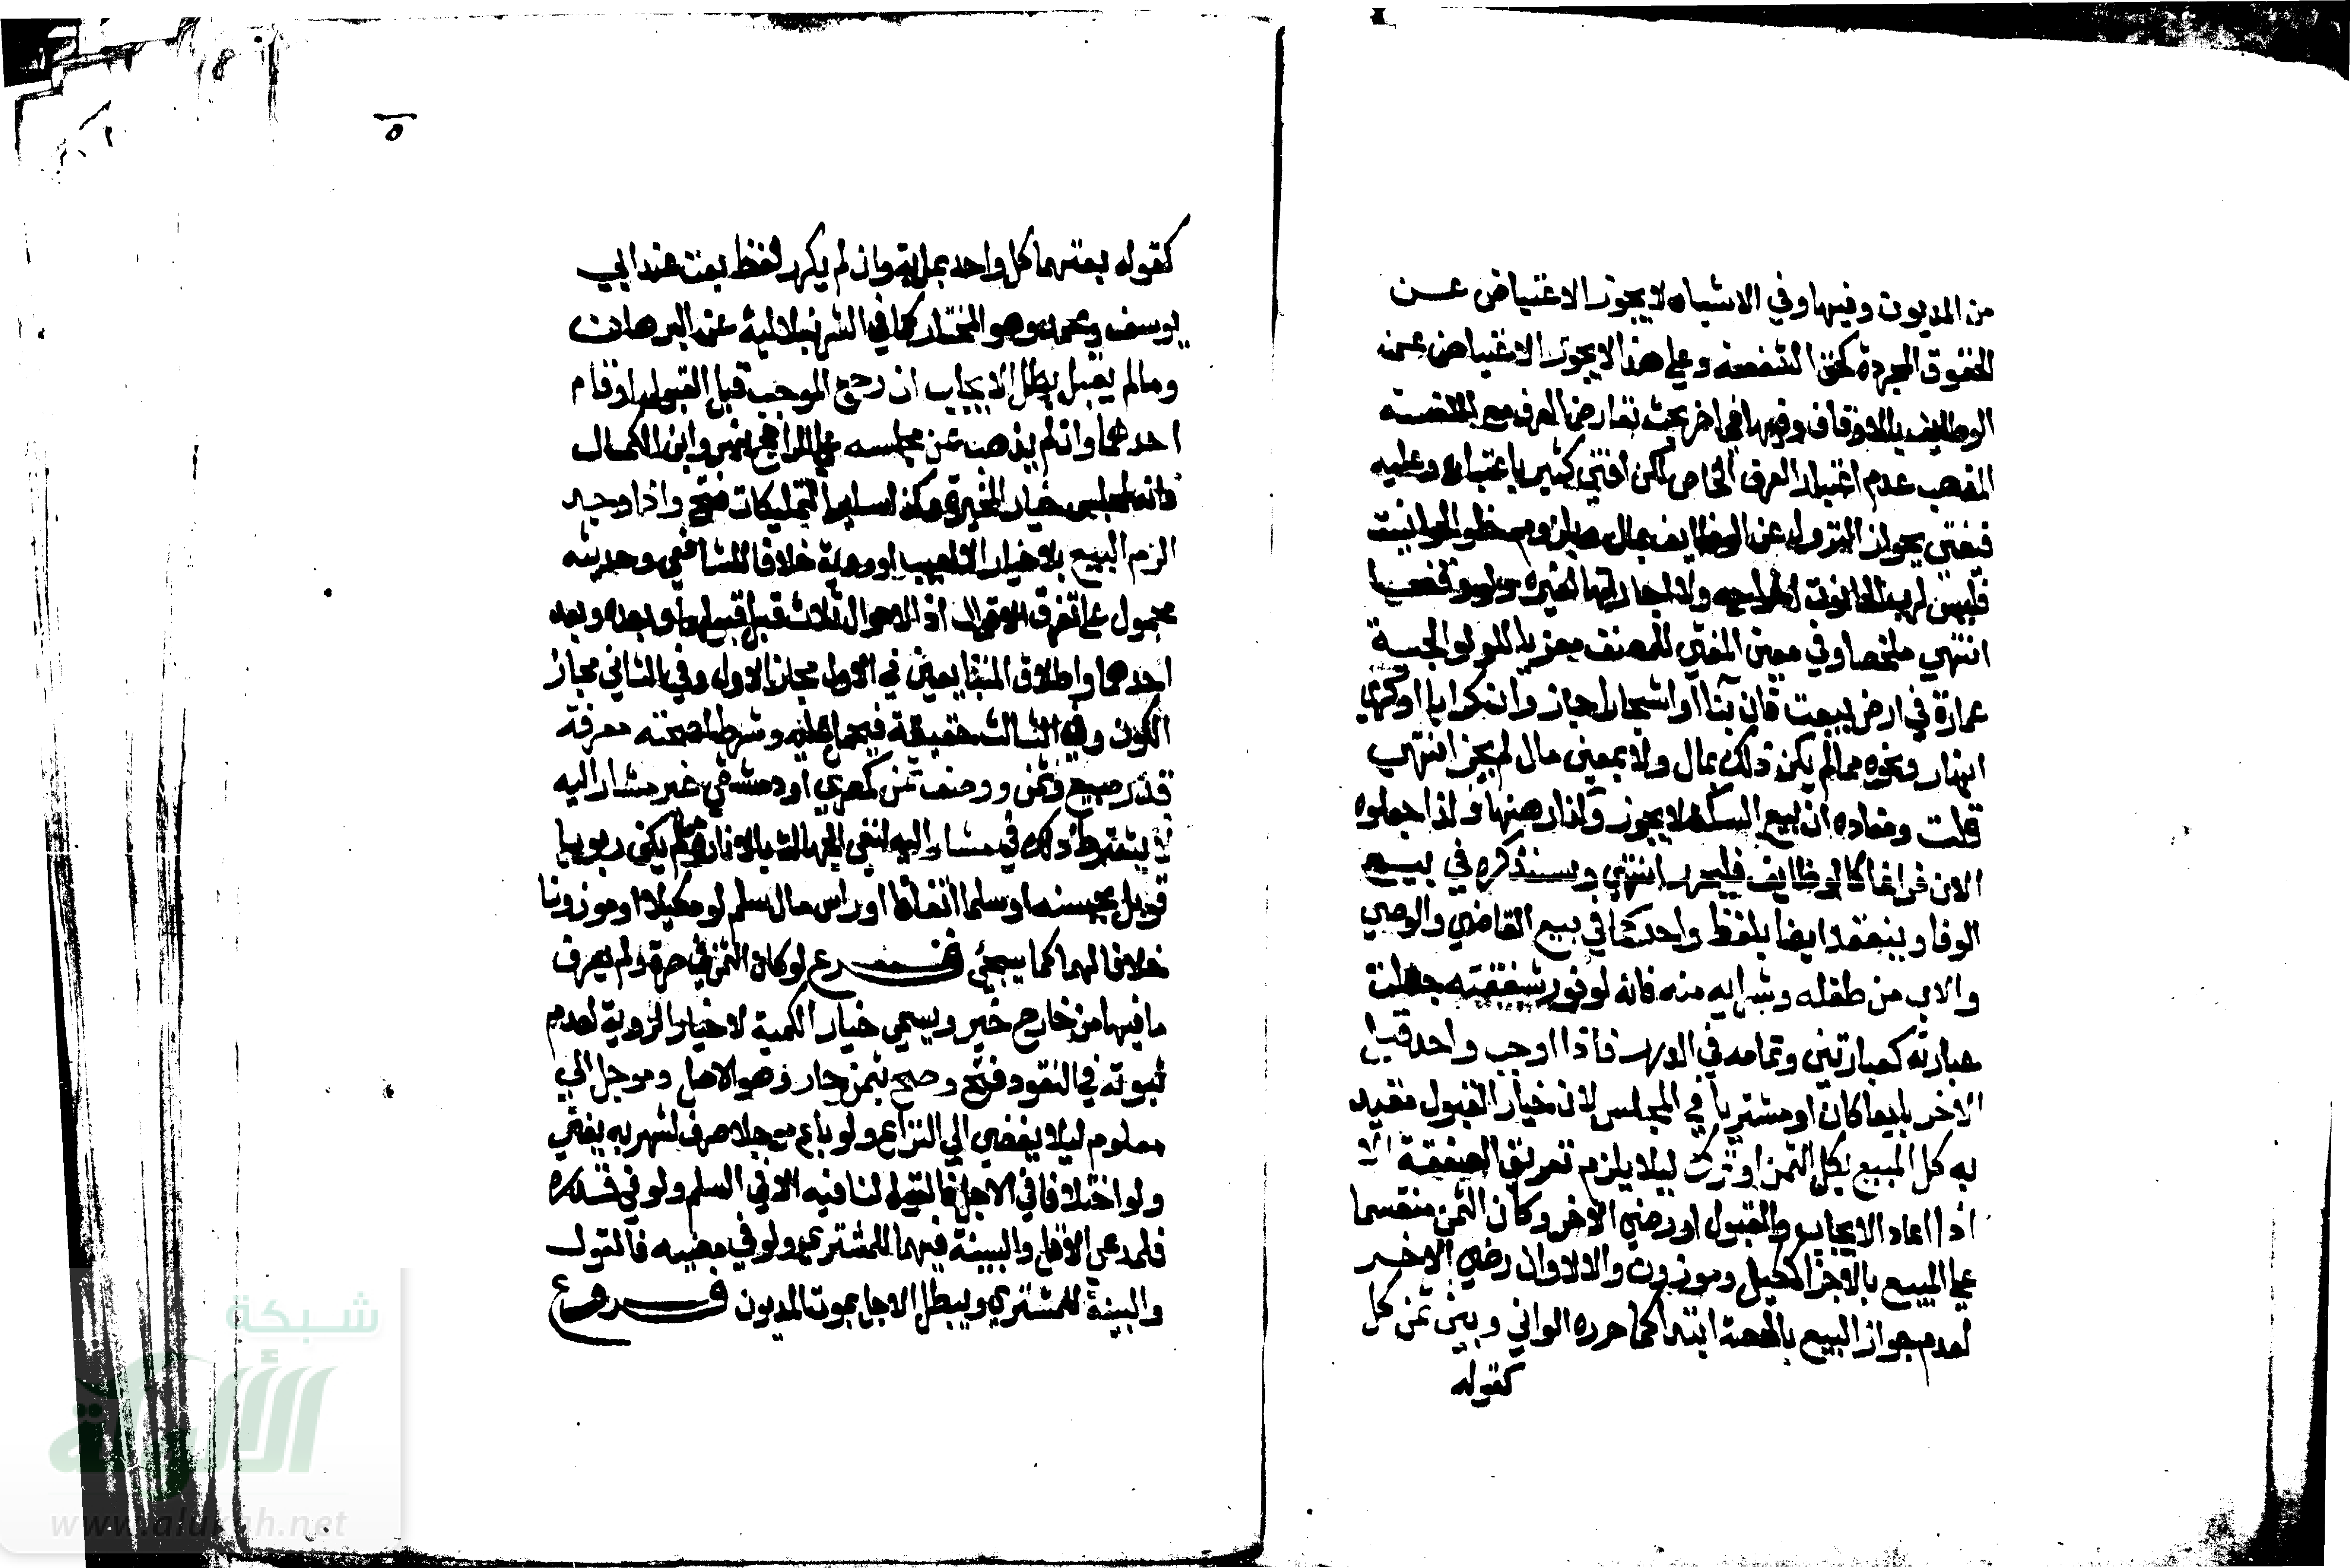 من المديون وفيها وفي الاشباه لا يجوز الاعتياض عن
الحقوق المجردة كحق الشفعة وعلى هذا لا يجوز الاعتياض عن
الوظايف بالاوقاف وفيها في اخر بحث تعارض العرف مع اللغة
المذهب عدم اعتبار العرف الخاص لكن افتى كثير باعتباره وعليه
فيفتى بجواز النزول عن الوظايف بمال وبلزوم خلو الحوانيت
فليس لرب الحانوت اخراجه ولا اجارتها لغيره ولو وقفا
انتهي ملخصا وفي معين المفتي للمصنف معزيا للولوالجية
عمارة في ارض بيعت فان بنا او اشجارا جاز وان كرابا او كري
انهار ونحوه مما لم يكن ذلك بمال ولا بمعنى مال لم يجز انتهي
قلت ومفاده ان بيع السكة لا يجوز وكذا رهنها ولذا جعلوه
الان فراغا كالوظايف فليحرر انتهي وسنذكره في بيع
الوفا وينعقد ايضا بلفظ واحد كما في بيع القاضي والوصي
والاب من طفله وشرايه منه فانه لوفور شفقته جعلت
عبارته كعبارتين وتمامه في الدرر فاذا اوجب واحد قبل
الاخر بايعا كان او مشتريا في المجلس لان خيار القبول مقيد
به كل المبيع بكل الثمن او ترك ليلا يلزم تفريق الصفقة الا
اذا اعاد الايجاب والقبول او رضي الاخر وكان الثمن منقسما
على المبيع بالاجزا كمكيل وموزون والا لا وان رضي الاخر
لعدم جواز البيع بالحصة ابتدا كما حرره الواني وبين ثمن كل
كقوله
٥
كقوله بعتهما كل واحد بماية وان لم يكرر لفظ بعت عند ابي
يوسف ومحمد وهو المختار كما في الشرنبلالية عن البرهان
وما لم يقبل بطل الايجاب ان رجع الموجب قبل القبول او قام
احدهما وان لم يذهب عن مجلسه على الراجح نهر وابن الكمال
فانه كمجلس خيار المخيرة وكذا ساير التمليكات فتح واذا وجد
لزم البيع بلا خيار الا لعيب او روية خلافا للشافعي وحديثه
محمول على تفرق الاقوال اذ الاحوال ثلاث قبل قبولهما وبعده وبعد
احدهما واطلاق المتبايعين في الاول مجاز الاول وفي الثاني مجاز
الكون وفي الثالث حقيقة فيحمل عليه وشرط لصحته معرفة
قدر مبيع وثمن ووصف ثمن كمصري او دمشقي غير مشار اليه
لا يشترط ذلك في مشار اليه لنفي الجهالة بالاشارة ما لم يكن ربويا
قوبل بجنسه او سلما اتفاقا او راس مال سلم لو مكيلا او موزونا
خلافا لهما كما سيجي فرع لو كان الثمن في صرة ولم يعرف
ما فيها من خارج خير ويسمى خيار الكمية لا خيار الروية لعدم
ثبوته في النقود فتح وصح بثمن حال وهو الاصل وموجل الي
معلوم ليلا يفضي الي النزاع ولو باع موجلا صرف لشهر به يفتى
ولو اختلافا في الاجل فالقول لنافيه الا في السلم ولو في قدره
فلمدعي الاقل والبينة فيهما للمشتري ولو في مضيه فالقول
والبينة للمشتري ويبطل الاجل بموت المديون فروع
شبكة
الألوكة
www.alukah.net